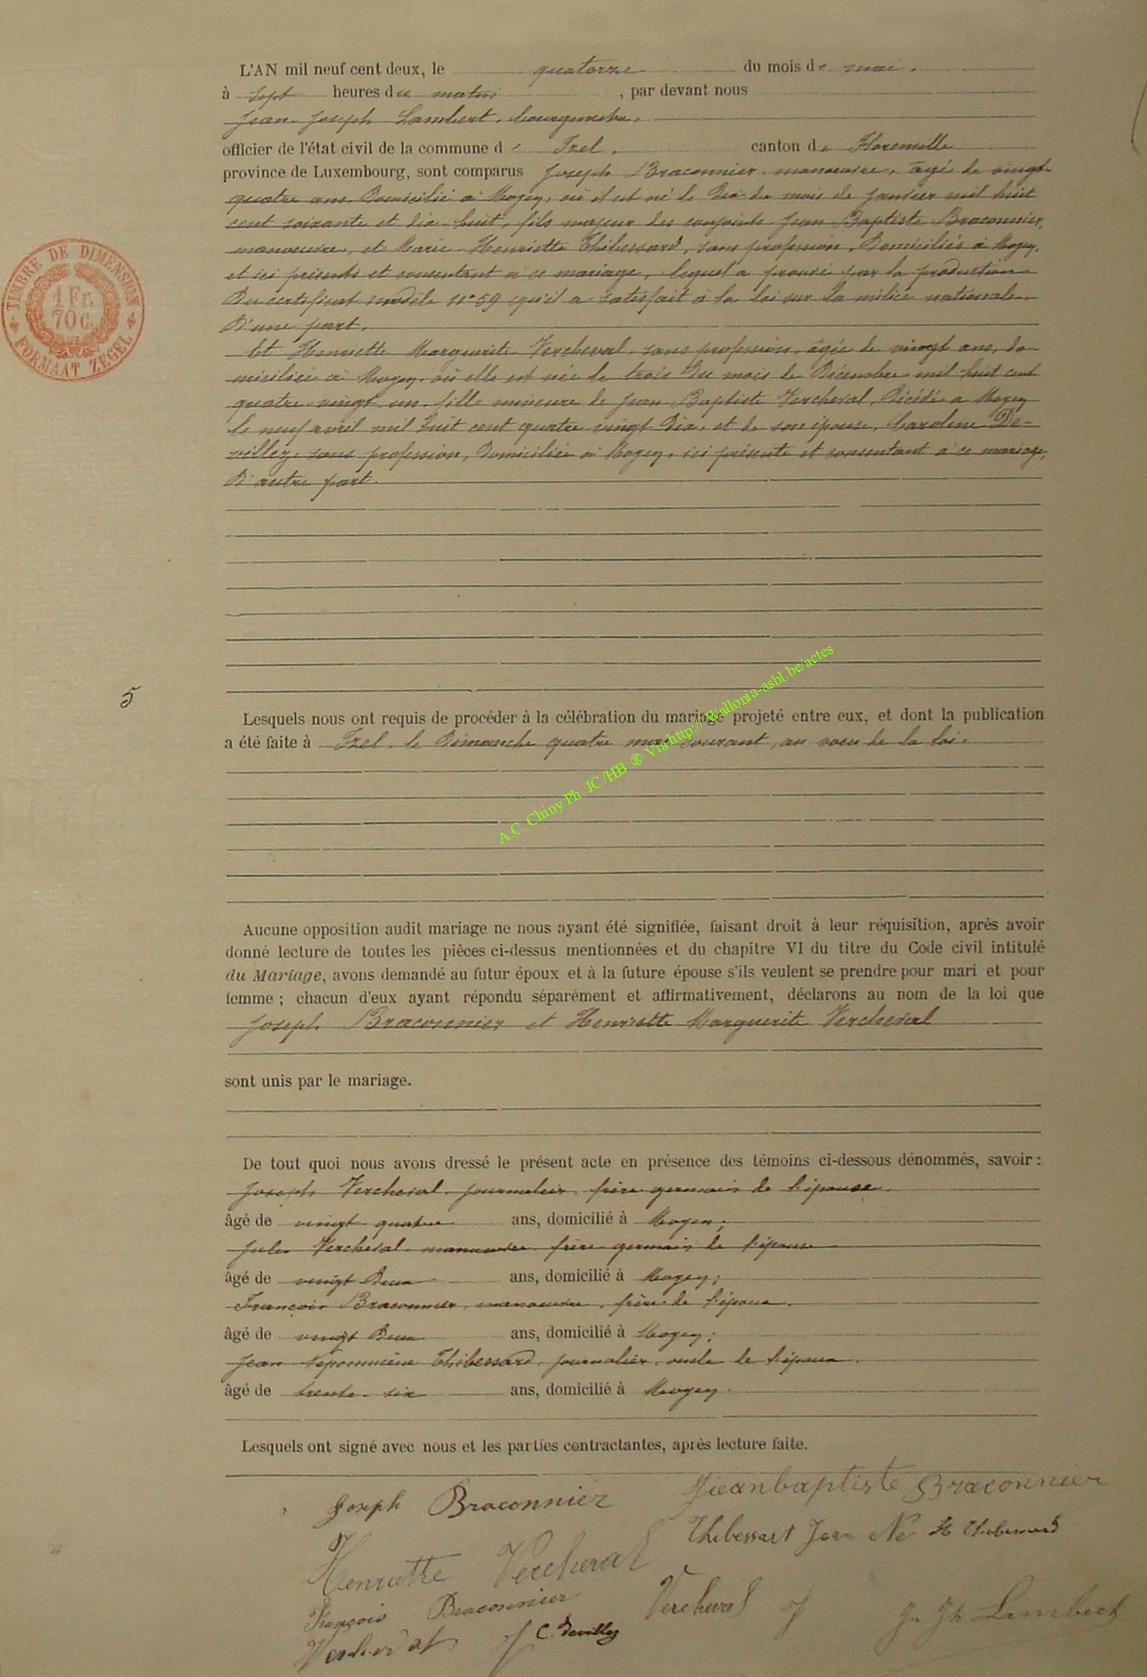 L'AN mil neuf cent deux, le quatorze du mois de mai.
à sept heures du matin, par devant nous
Jean Joseph Lambert, bourgmestre,
officier de l'état civil de la commune d'Izel, canton de Florenville
province de Luxembourg, sont comparus Joseph Braconnier, manoeuvre, âgé de vingt-
quatre ans, Domicilié à Moyen, où il est né le Dix du mois de janvier mil huit
cent soixante et dix-huit, fils majeur des conjoints Jean Baptiste Braconnier,
manoeuvre, et Marie Henriette Thibessard, sans profession, Domiciliés à Moyen,
et ici présents et consentant à ce mariage, lequel a prouvé par la production
Du certificat modèle n° 59 qu'il a satisfait à la loi sur la milice nationale.
D'une part.
Et Henriette Marguerite Vercheval, sans profession, âgée de vingt ans, do-
miciliée à Moyen, où elle est née le trois Du mois de Décembre mil huit cent
quatre-vingt-un, fille mineure de Jean Baptiste Vercheval, Décédé à Moyen
le neuf avril mil huit cent quatre vingt Dix, et de son épouse, Caroline De-
villez, sans profession, Domiciliée à Moyen, ici présente et consentant à ce mariage,
D'autre part.
5
Lesquels nous ont requis de procéder à la célébration du mariage projeté entre eux, et dont la publication
a été faite à Izel, le Dimanche quatre mai courant, au voeu de la loi.
Aucune opposition audit mariage ne nous ayant été signifiée, faisant droit à leur réquisition, après avoir
donné lecture de toutes les pièces ci-dessus mentionnées et du chapitre VI du titre du Code civil intitulé
du Mariage, avons demandé au futur époux et à la future épouse s'ils veulent se prendre pour mari et pour
femme ; chacun d'eux ayant répondu séparément et affirmativement, déclarons au nom de la loi que
Joseph Braconnier et Henriette Marguerite Vercheval
sont unis par le mariage.
De tout quoi nous avons dressé le présent acte en présence des témoins ci-dessous dénommés, savoir :
Joseph Vercheval, journalier, frère germain de l'épouse,
âgé de vingt-quatre ans, domicilié à Moyen ;
Jules Vercheval, manoeuvre, frère germain de l'épouse
âgé de vingt Deux ans, domicilié à Moyen ;
François Braconnier, manoeuvre, frère de l'époux,
âgé de vingt Deux ans, domicilié à Moyen ;
Jean Népomucène Thibessard, journalier, oncle de l'époux,
âgé de trente-six ans, domicilié à Moyen.
Lesquels ont signé avec nous et les parties contractantes, après lecture faite.
Joseph Braconnier Jeanbaptiste Braconnier
Thibessart Jean Ne H Thibessard
Henriette Vercheval
François Braconnier Vercheval J Jn Jh Lambert
Vercheval J C. Devillez
TIMBRE DE DIMENSION
1 Fr.
70 C.
FORMAAT ZEGEL
A.C. Chiny Ph. JC/HB ® Via http://Wallonia-asbl.be/actes